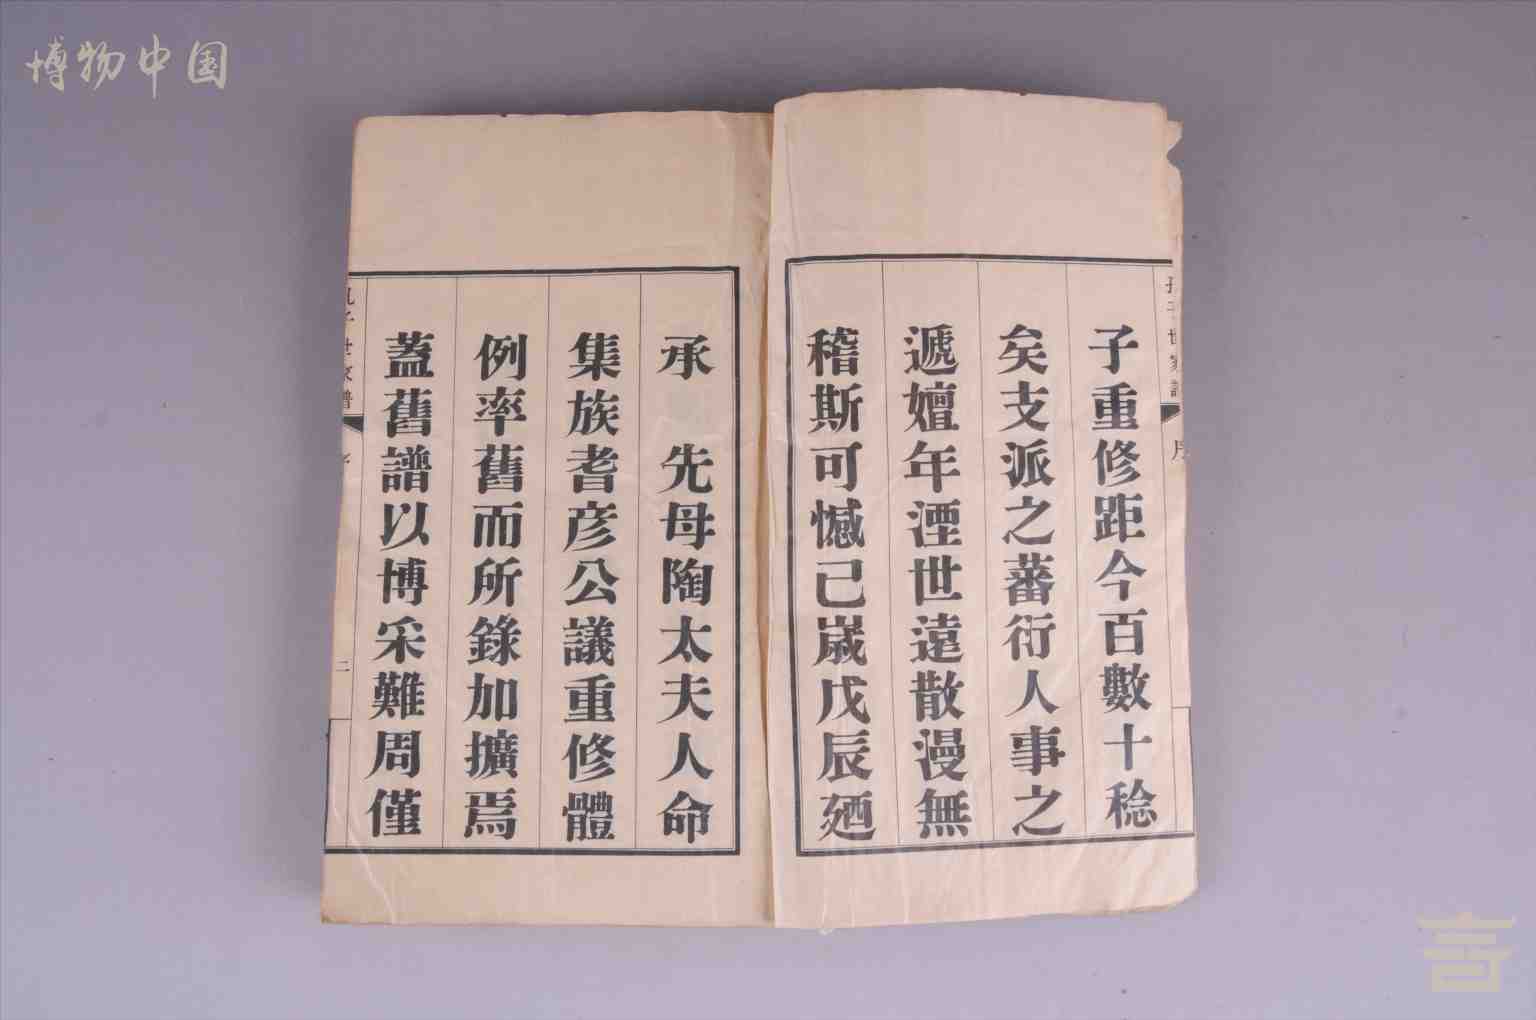 博物中国
子重修距今百數十稔
矣支派之蕃衍人事之
遞嬗年湮世遠散漫無
稽斯可憾已嵗戊辰廼
承　先母陶太夫人命
集族耆彦公議重修體
例率舊而所錄加擴焉
蓋舊譜以博采難周僅
孔子世家譜
序
孔子世家譜
二